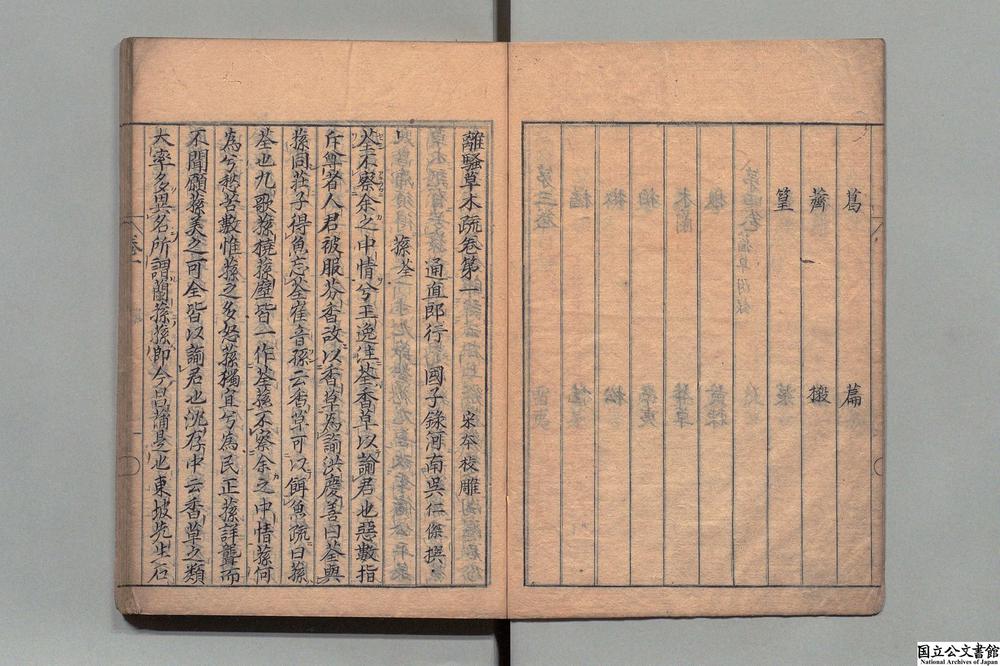 葛　篇
薺　樧
篁
離騷草木疏卷第一　宋本校雕
通直郎行國子錄河南吳仁傑撰
蓀荃
荃不察余之中情兮王逸注荃香草以諭君也惡數指
斥尊者人君被服芬香故以香草為諭洪慶善曰荃與
蓀同莊子得魚忘荃崔音孫云香草可以餌魚疏曰蓀
荃也九歌蓀橈蓀壁皆一作荃蓀不察余之中情蓀何
為兮愁苦數惟蓀之多怒蓀獨宜兮為民正蓀詳聾而
不聞願蓀美之可全皆以諭君也沈存中云香草之類
大率多異名所謂蘭蓀蓀即今昌蒲是也東坡先生石
卷一
国立公文書館
National Archives of Japan